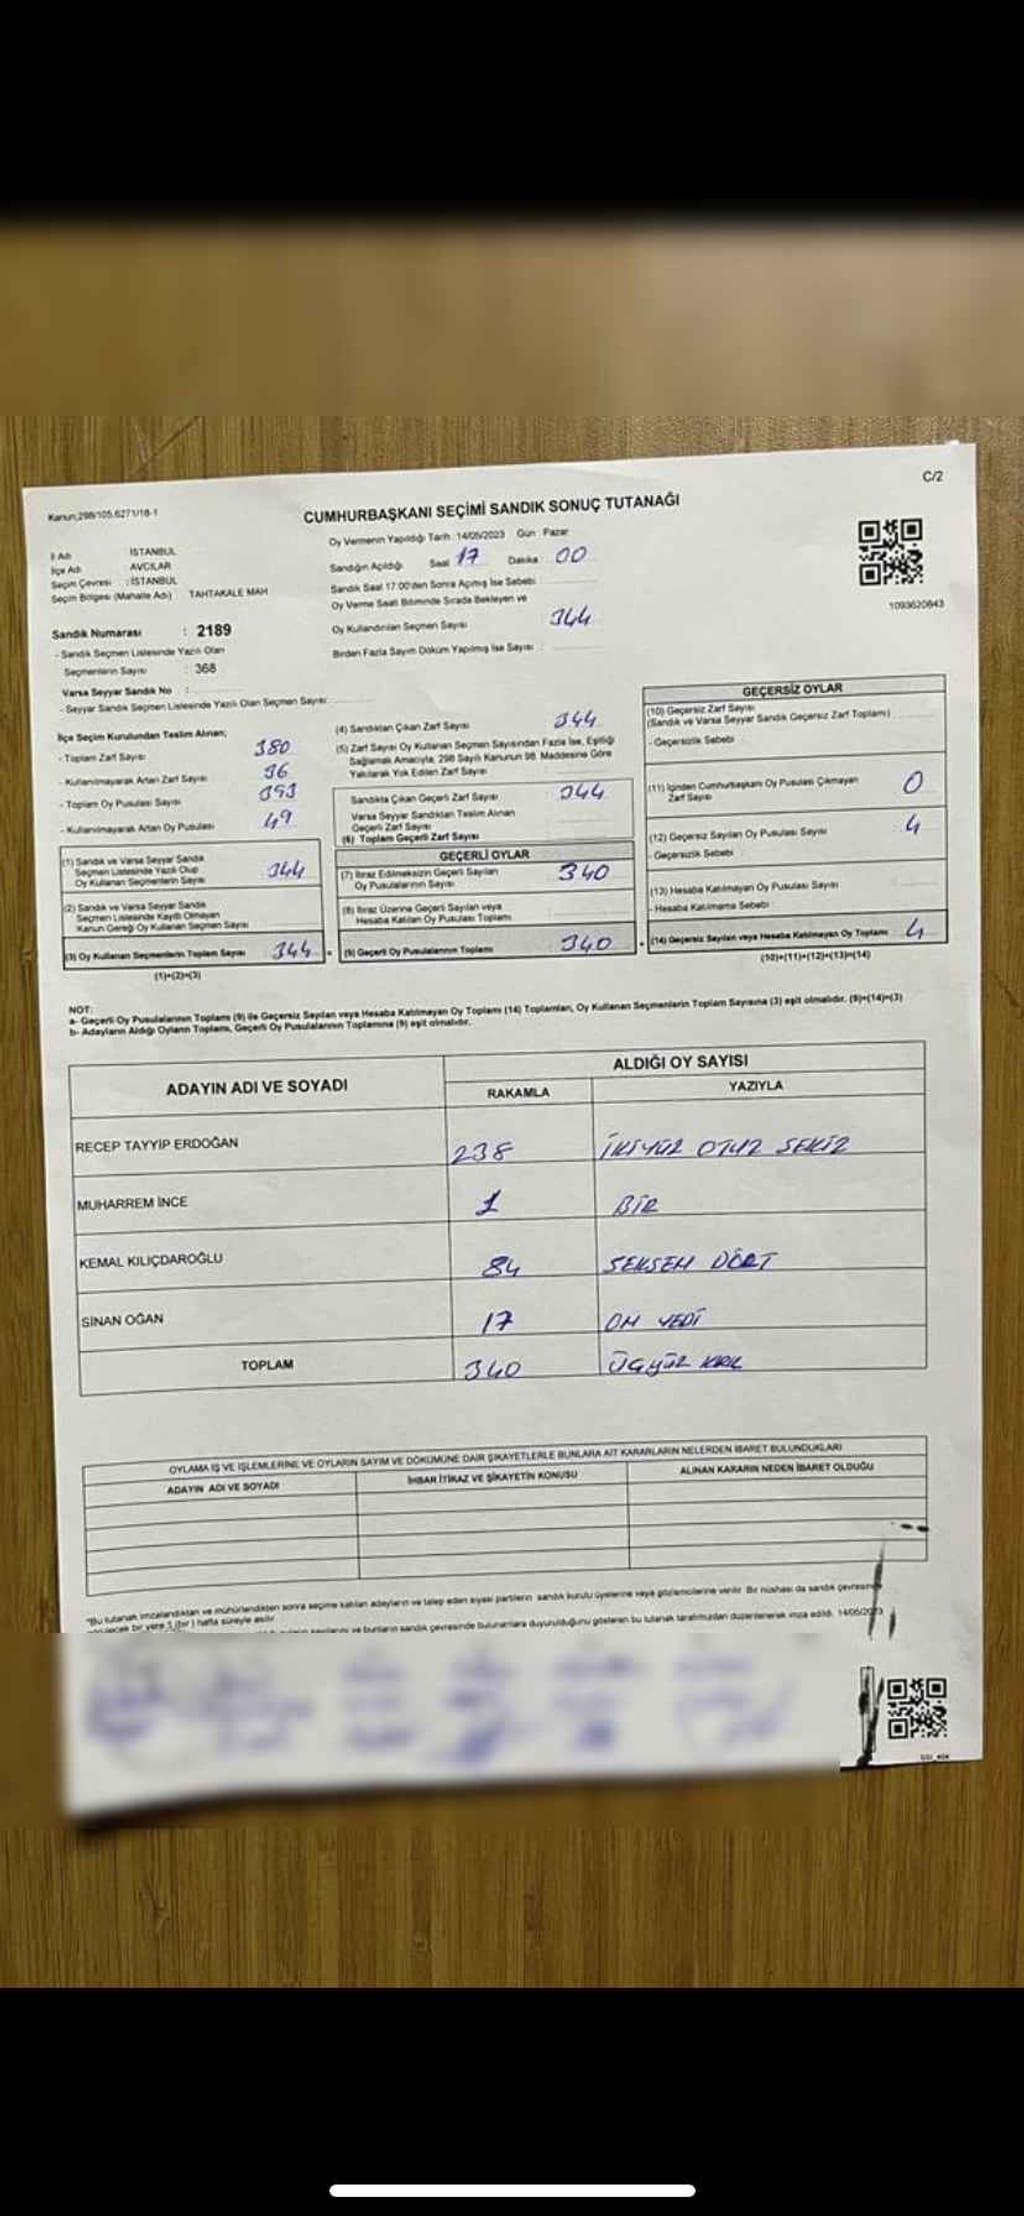 C/2
Kanun:298/105,6271/18-1
CUMHURBAŞKANI SEÇİMİ SANDIK SONUÇ TUTANAĞI
Oy Vermenin Yapıldığı Tarih :14/05/2023 Gün : Pazar
İl Adı İSTANBUL
İlçe Adı AVCILAR
Seçim Çevresi : İSTANBUL
Seçim Bölgesi (Mahalle Adı) TAHTAKALE MAH
Sandığın Açıldığı Saat 17 Dakika : 00
Sandık Saat 17:00'den Sonra Açımış İse Sebebi
Oy Verme Saati Bitiminde Sırada Bekleyen ve
Oy Kullandırılan Seçmen Sayısı 344
Birden Fazla Sayım Döküm Yapılmış İse Sayısı :
1093620843
Sandık Numarası : 2189
- Sandık Seçmen Listesinde Yazılı Olan
Seçmenlerin Sayısı : 368
Varsa Seyyar Sandık No :
- Seyyar Sandık Seçmen Listesinde Yazılı Olan Seçmen Sayısı:
İlçe Seçim Kurulundan Teslim Alınan;
- Toplam Zarf Sayısı 380
- Kullanılmayarak Artan Zarf Sayısı 36
- Toplam Oy Pusulası Sayısı 393
- Kullanılmayarak Artan Oy Pusulası 49
(1) Sandık ve Varsa Seyyar Sandık
Seçmen Listesinde Yazılı Olup
Oy Kullanan Seçmenlerin Sayısı 344
(2) Sandık ve Varsa Seyyar Sandık
Seçmen Listesinde Kayıtlı Olmayan
Kanun Gereği Oy Kullanan Seçmen Sayısı
(3) Oy Kullanan Seçmenlerin Toplam Sayısı 344
(1)+(2)=(3)
(4) Sandıktan Çıkan Zarf Sayısı 344
(5) Zarf Sayısı Oy Kullanan Seçmen Sayısından Fazla İse, Eşitliği
Sağlamak Amacıyla, 298 Sayılı Kanunun 98. Maddesine Göre
Yakılarak Yok Edilen Zarf Sayısı
Sandıkta Çıkan Geçerli Zarf Sayısı : 344
Varsa Seyyar Sandıktan Teslim Alınan
Geçerli Zarf Sayısı
(6) Toplam Geçerli Zarf Sayısı
GEÇERLİ OYLAR
(7) İtiraz Edilmeksizin Geçerli Sayılan
Oy Pusulalarının Sayısı 340
(8) İtiraz Üzerine Geçerli Sayılan veya
Hesaba Katılan Oy Pusulası Toplamı
(9) Geçerli Oy Pusulalarının Toplamı 340
GEÇERSİZ OYLAR
(10) Geçersiz Zarf Sayısı
(Sandık ve Varsa Seyyar Sandık Geçersiz Zarf Toplamı)
- Geçersizlik Sebebi :
(11) İçinden Cumhurbaşkanı Oy Pusulası Çıkmayan
Zarf Sayısı 0
(12) Geçersiz Sayılan Oy Pusulası Sayısı 4
- Geçersizlik Sebebi :
(13) Hesaba Katılmayan Oy Pusulası Sayısı
- Hesaba Katılmama Sebebi :
(14) Geçersiz Sayılan veya Hesaba Katılmayan Oy Toplamı 4
(10)+(11)+(12)+(13)=(14)
NOT:
a- Geçerli Oy Pusulalarının Toplamı (9) ile Geçersiz Sayılan veya Hesaba Katılmayan Oy Toplamı (14) Toplamları, Oy Kullanan Seçmenlerin Toplam Sayısına (3) eşit olmalıdır. (9)+(14)=(3)
b- Adayların Aldığı Oyların Toplamı, Geçerli Oy Pusulalarının Toplamına (9) eşit olmalıdır.
ADAYIN ADI VE SOYADI ALDIĞI OY SAYISI
RAKAMLA YAZIYLA
RECEP TAYYİP ERDOĞAN 238 İKİYÜZ OTUZ SEKİZ
MUHARREM İNCE 1 BİR
KEMAL KILIÇDAROĞLU 84 SEKSEN DÖRT
SİNAN OĞAN 17 ON YEDİ
TOPLAM 340 ÜÇYÜZ KIRK
OYLAMA İŞ VE İŞLEMLERİNE VE OYLARIN SAYIM VE DÖKÜMÜNE DAİR ŞİKAYETLERLE BUNLARA AİT KARARLARIN NELERDEN İBARET BULUNDUKLARI
ADAYIN ADI VE SOYADI İHBAR İTİRAZ VE ŞİKAYETİN KONUSU ALINAN KARARIN NEDEN İBARET OLDUĞU
*Bu tutanak imzalandıktan ve mühürlendikten sonra seçime katılan adayların ve talep eden siyasi partilerin sandık kurulu üyelerine veya gözlemcilerine verilir. Bir nüshası da sandık çevresinde
bir yere 1 (bir) hafta süreyle asılır.
ve bunların sandık çevresinde bulunanlara duyurulduğunu gösteren bu tutanak tarafımızdan düzenlenerek imza edildi. 14/05/2023